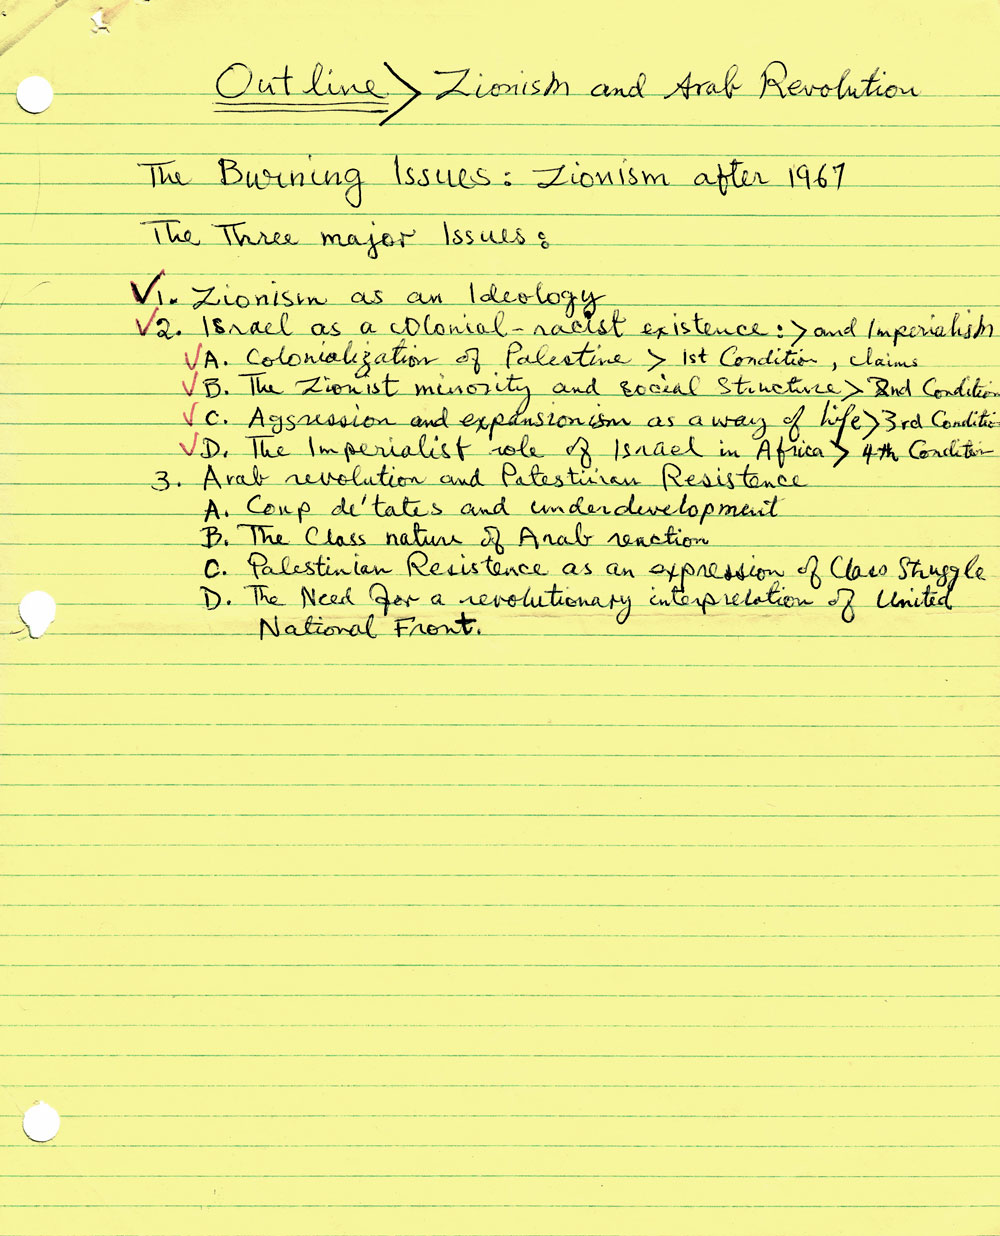 Outline > Zionism and Arab Revolution
The Burning Issues: Zionism after 1967
The Three major Issues:
✓1. Zionism as an Ideology
✓2. Israel as a colonial-racist existence: > and Imperialism
✓A. Colonialization of Palestine > 1st Condition, claims
✓B. The Zionist minority and social structure > 2nd Condition
✓C. Aggression and expansionism as a way of life > 3rd Conditio
✓D. The Imperialist role of Israel in Africa > 4th Condition
3. Arab revolution and Palestinian Resistence
A. Coup de'tates and underdevelopment
B. The Class nature of Arab reaction
C. Palestinian Resistence as an expression of Class Struggle
D. The Need for a revolutionary interprelation of United
National Front.